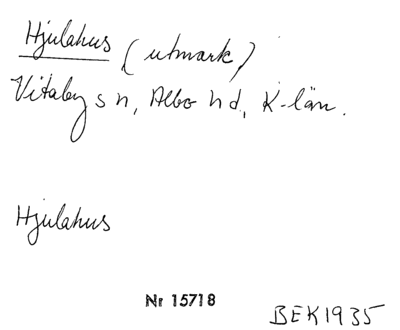 Hjulahus (utmark)
Vitaby sn, Albo hd, K-län.
Hjulahus
Nr 15718
BEK1935